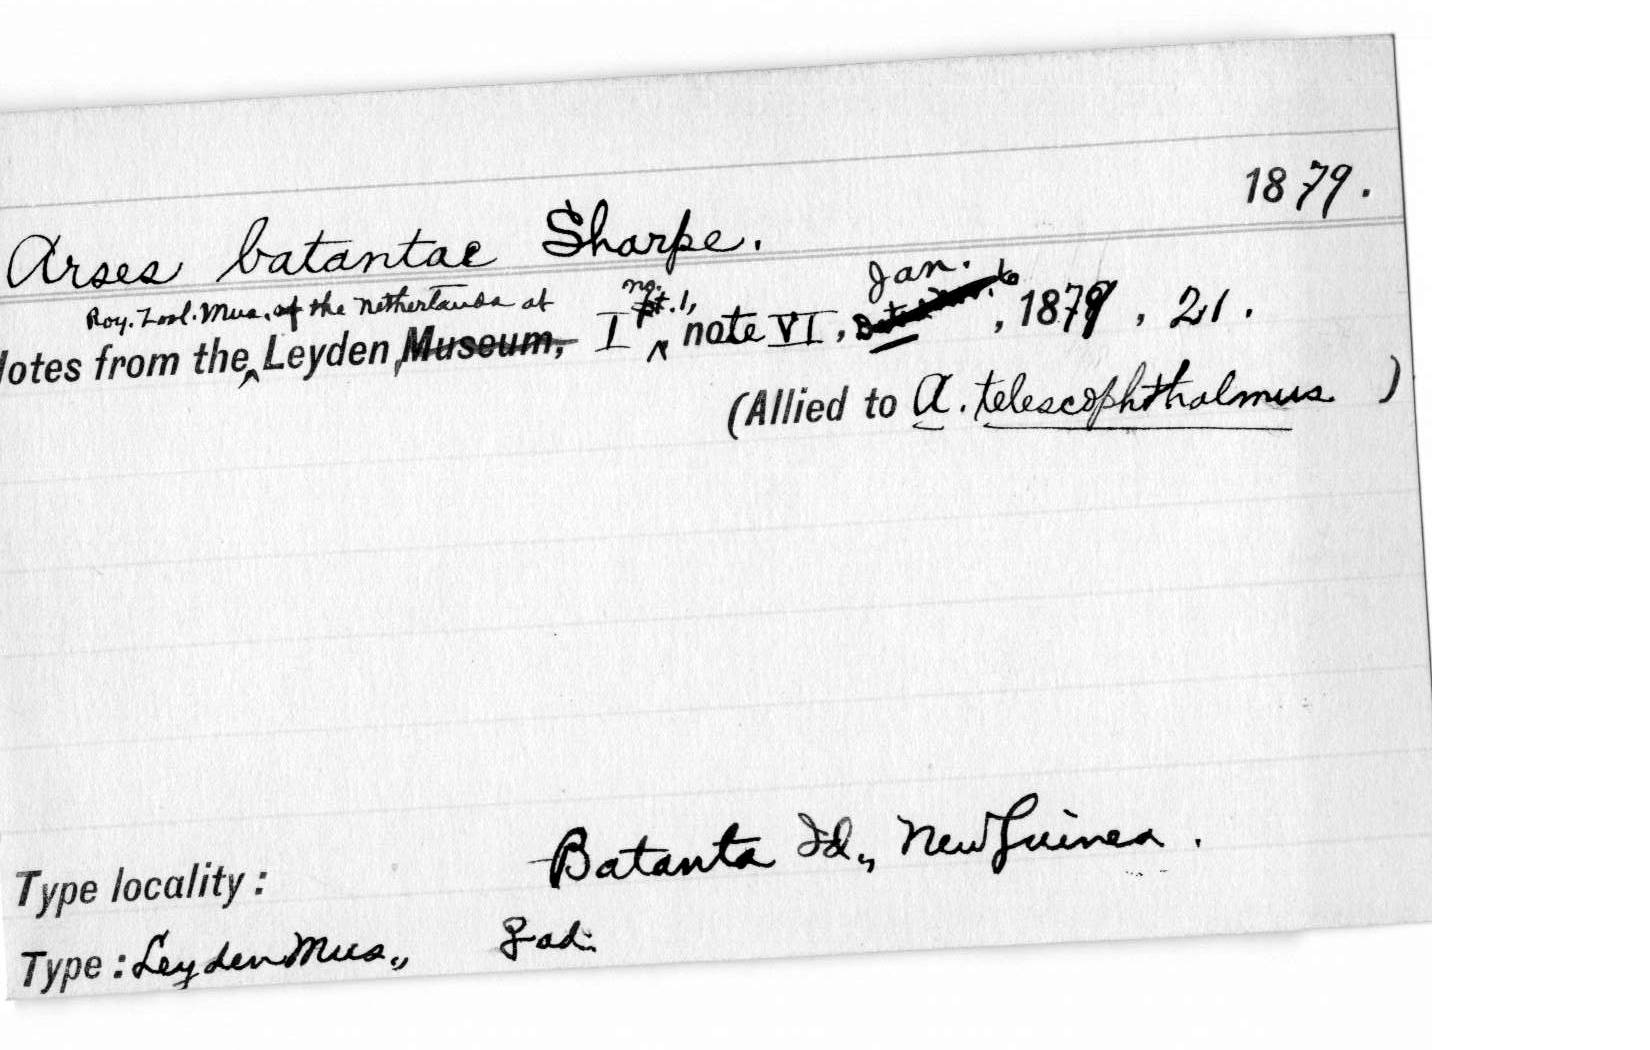 1879.
Arses batantae Sharpe.
Roy. Zool. Mus. of the Netherlands at no. Jan.
lotes from the ‸ Leyden Museum, I pt. 1, note VI, , 1879, 21.
(Allied to A. telescophthalmus )
Type locality: Batanta Id., New Guinea.
Type: Leyden Mus., ad.